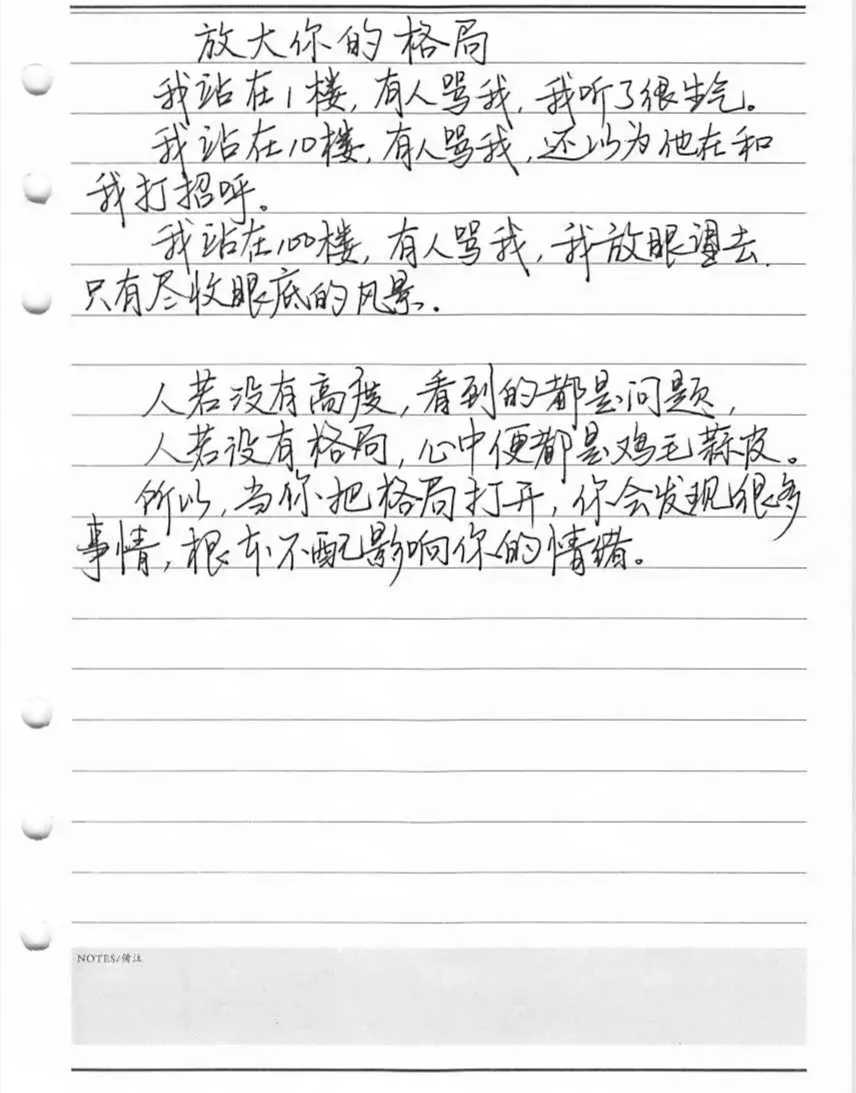 放大你的格局
我站在1楼，有人骂我，我听了很生气。
我站在10楼，有人骂我，还以为他在和
我打招呼。
我站在100楼，有人骂我，我放眼望去.
只有尽收眼底的风景.
人若没有高度，看到的都是问题，
人若没有格局，心中便都是鸡毛蒜皮。
所以，当你把格局打开，你会发现很多
事情，根本不配影响你的情绪。
NOTES/备注